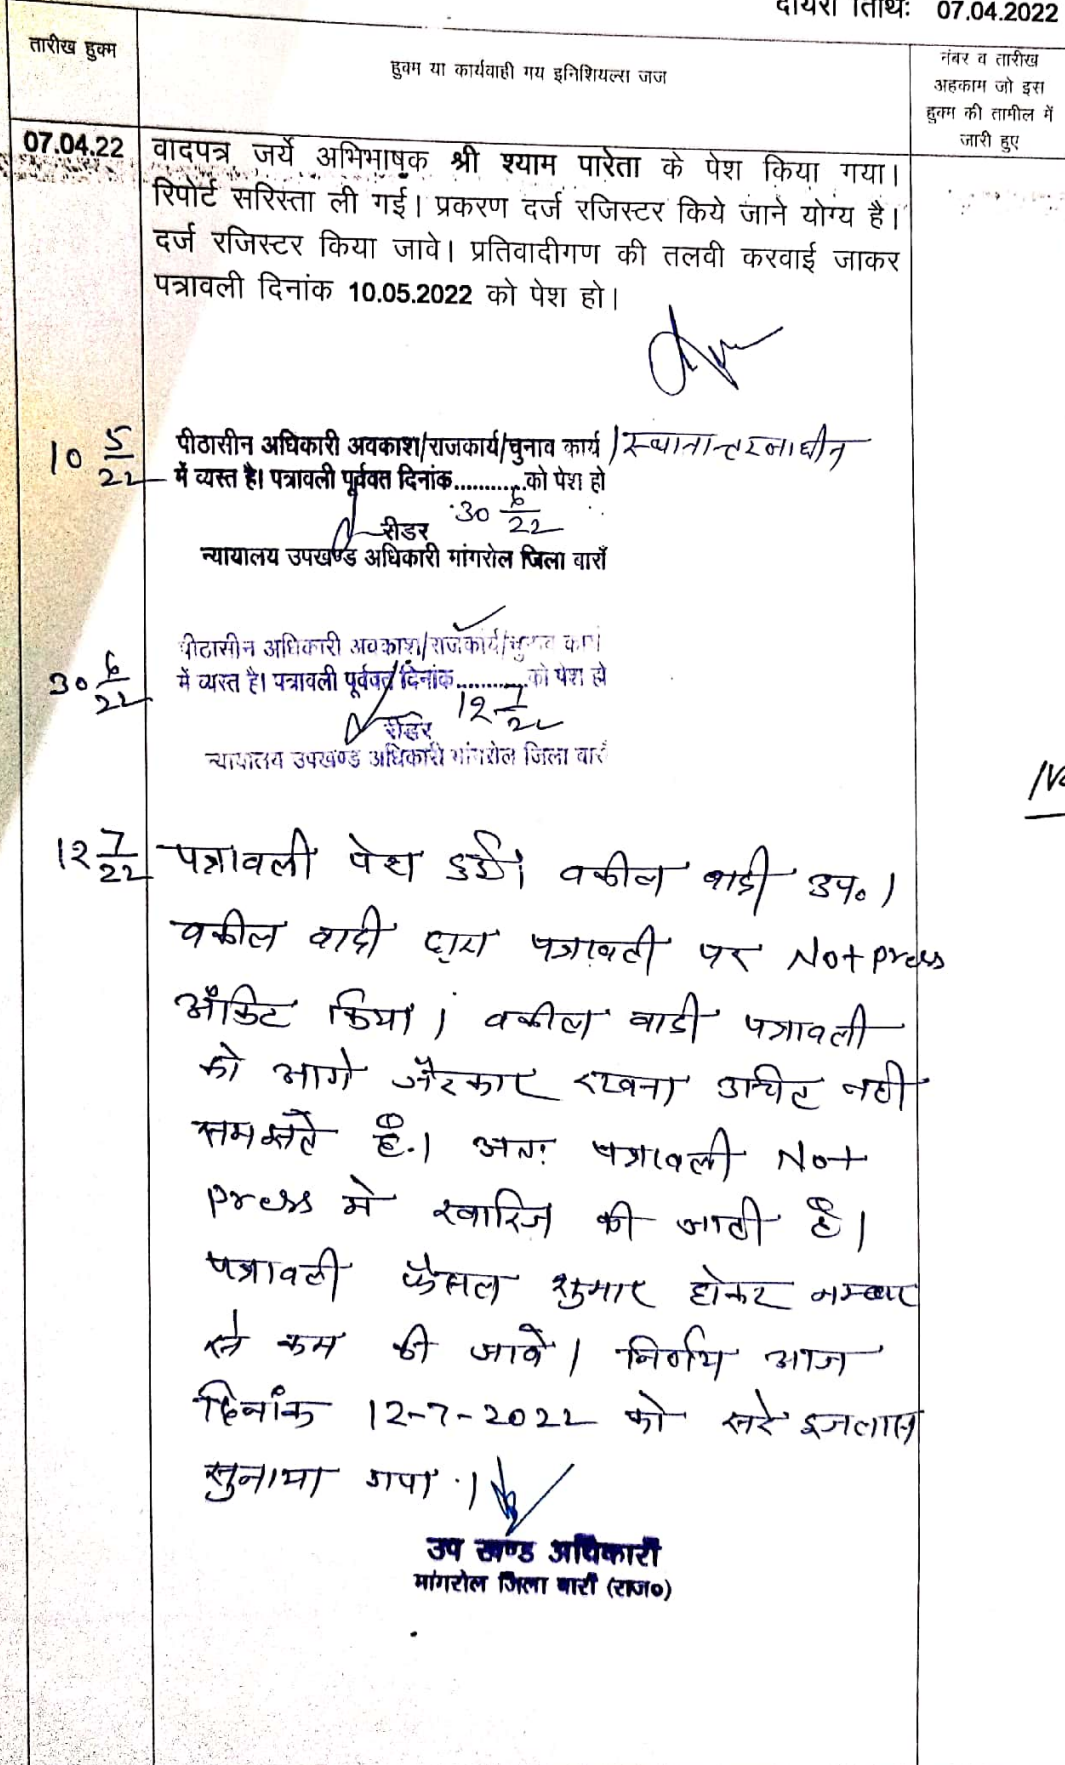 दायरा तिथिः 07.04.2022
तारीख हुक्म
हुक्म या कार्यवाही गय इनिशियल्स जज
नंबर व तारीख
अहकाम जो इस
हुक्म की तामील में
जारी हुए
07.04.22
वादपत्र जर्ये अभिभाषक श्री श्याम पारेता के पेश किया गया।
रिपोर्ट सरिस्ता ली गई। प्रकरण दर्ज रजिस्टर किये जाने योग्य है।
दर्ज रजिस्टर किया जावे। प्रतिवादीगण की तलवी करवाई जाकर
पत्रावली दिनांक 10.05.2022 को पेश हो।
10 5/22
पीठासीन अधिकारी अवकाश/राजकार्य/चुनाव कार्य / स्थानान्तरनाधीन
में व्यस्त है। पत्रावली पूर्ववत दिनांक............को पेश हो
30 6/22
रीडर
न्यायालय उपखण्ड अधिकारी मांगरोल जिला बाराँ
30 6/22
पीठासीन अधिकारी अवकाश/राजकार्य/चुनाव कार्य
में व्यस्त है। पत्रावली पूर्ववत दिनांक............को पेश हो
12 7/22
रीडर
न्यायालय उपखण्ड अधिकारी मांगरोल जिला बाराँ
12 7/22
पत्रावली पेश हुई। वकील वादी उप० ।
वकील वादी द्वारा पत्रावली पर Not press
अंकित किया। वकील वादी पत्रावली
को आगे जैरकार रखना उचित नही
समझते है.। अतः पत्रावली Not
press मे खारिज की जाती है।
पत्रावली फैसल शुमार होकर नम्बर
से कम की जावे। निर्णय आज
दिनांक 12-7-2022 को सरे इजलास
सुनाया गया ।
उप खण्ड अधिकारी
मांगरोल जिला बारां (राज०)